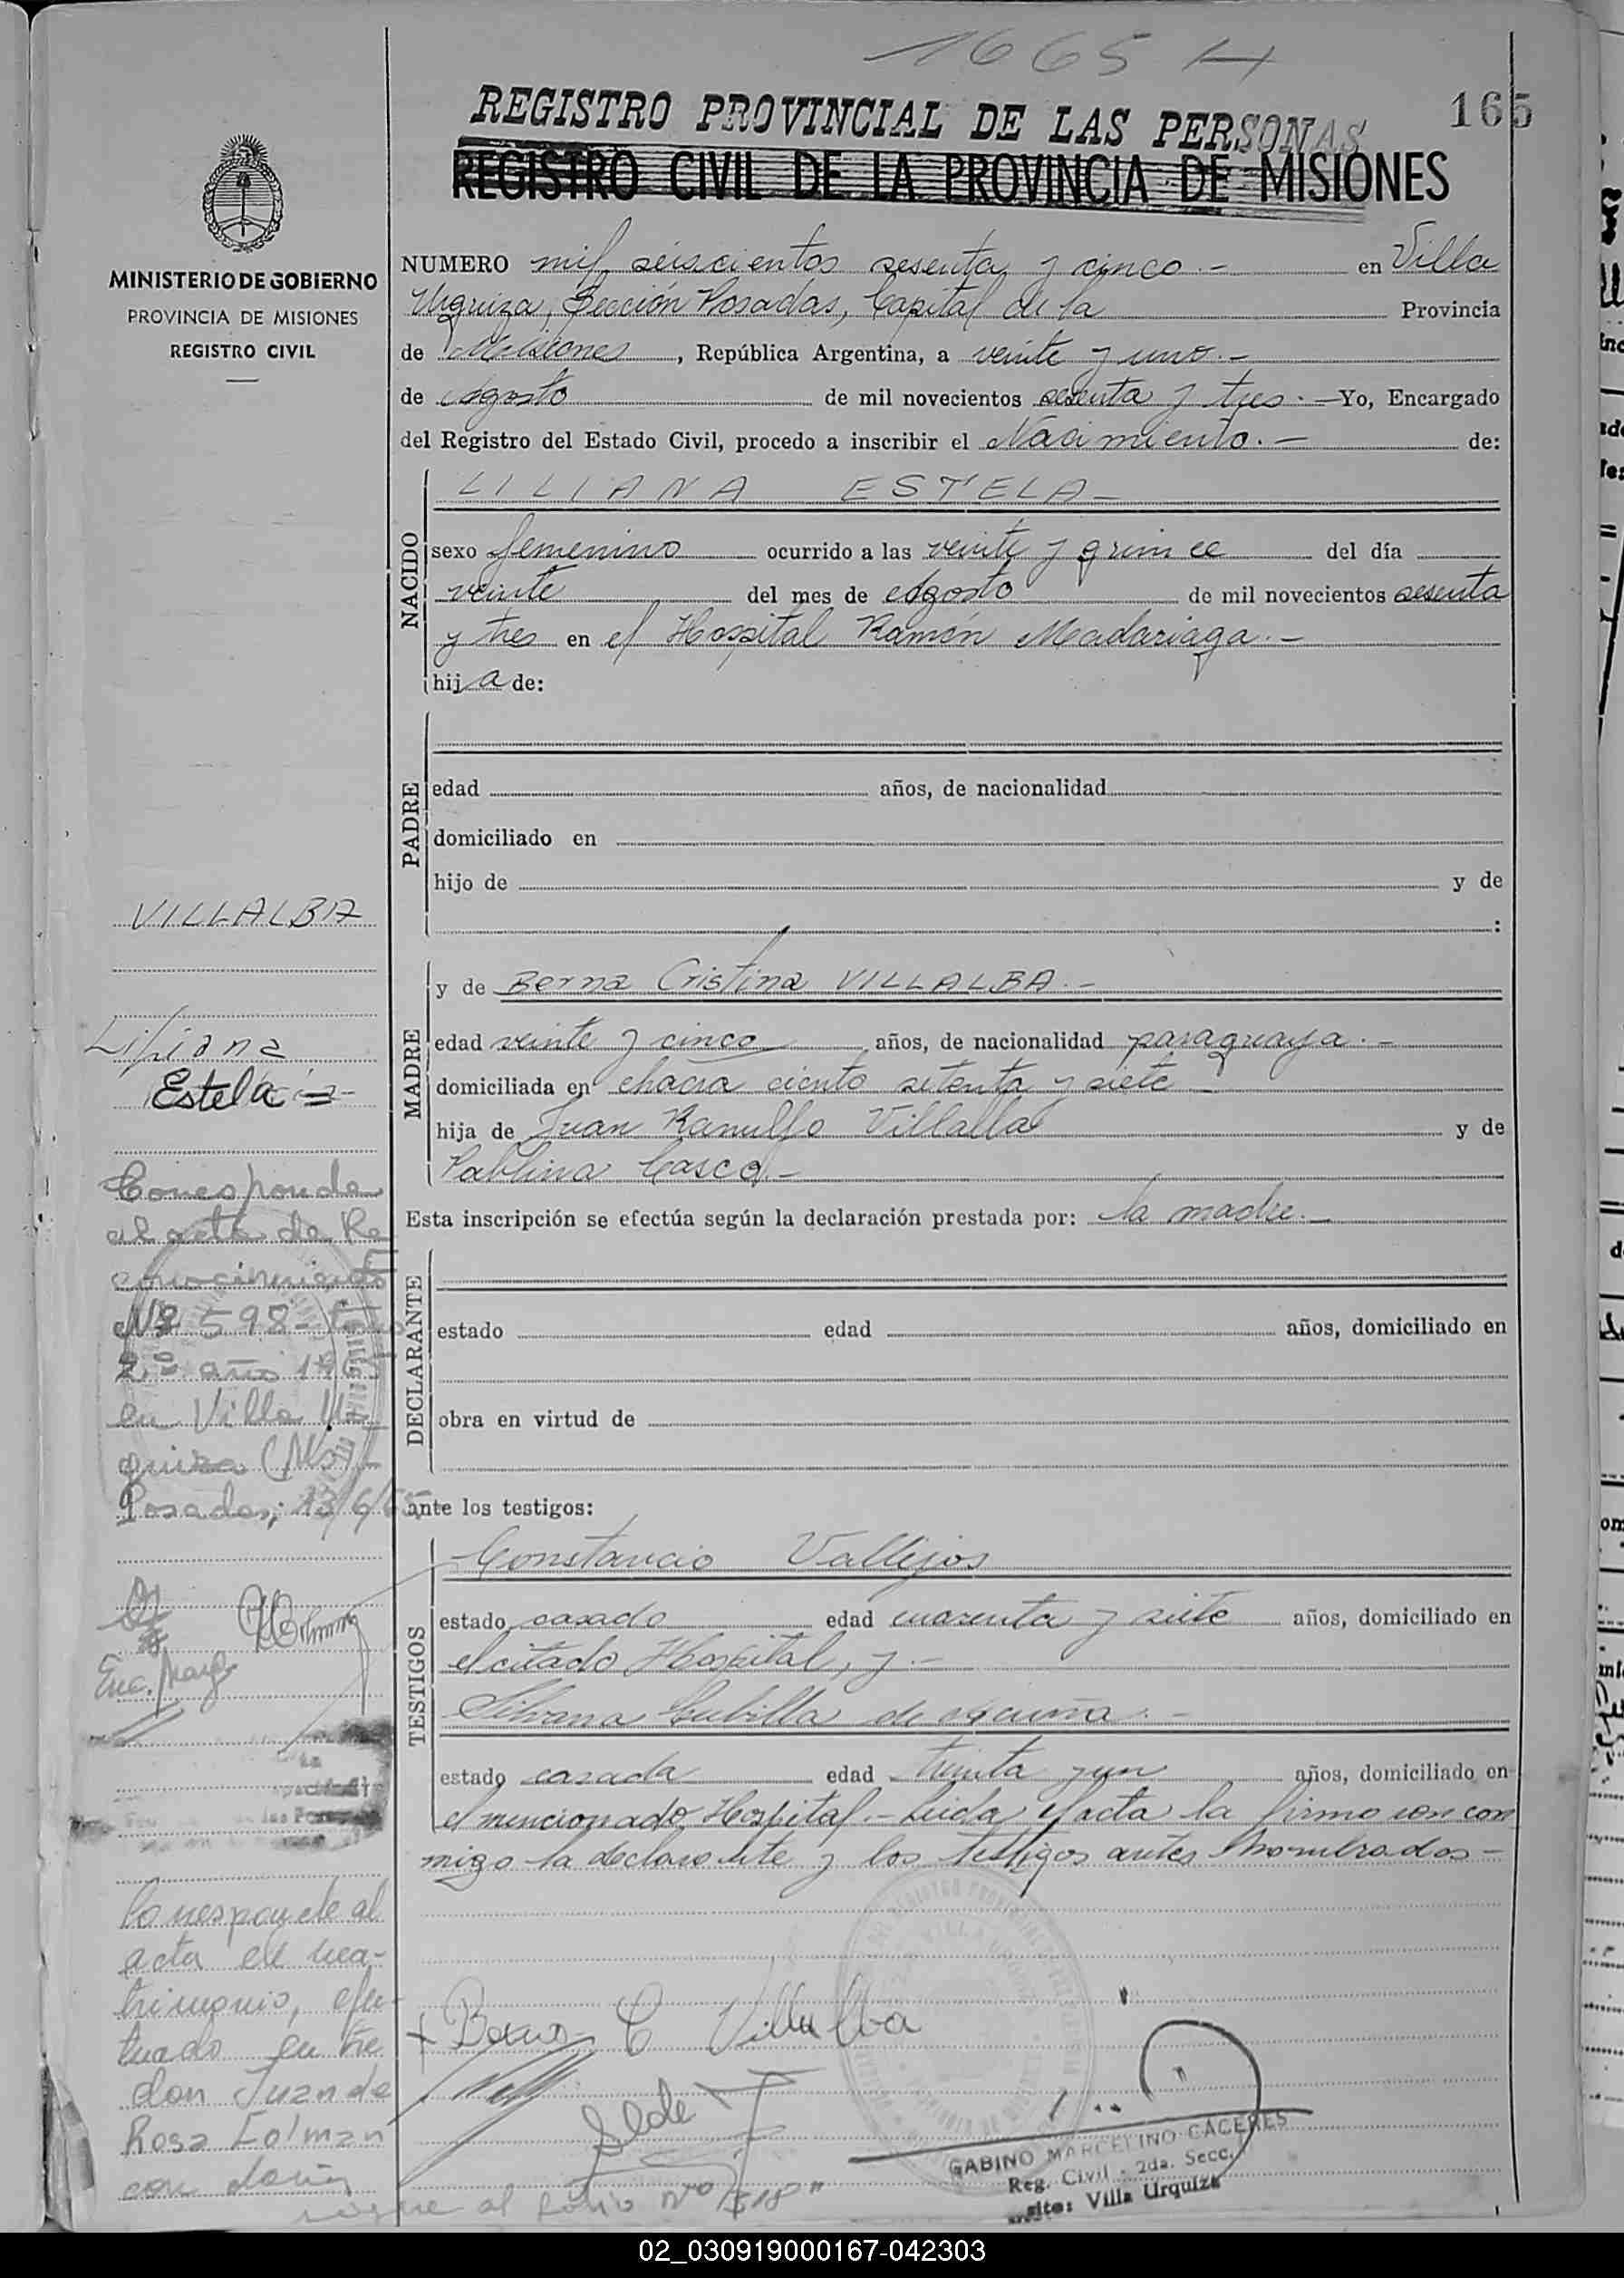 1665 H
REGISTRO PROVINCIAL DE LAS PERSONAS
165
REGISTRO CIVIL DE LA PROVINCIA DE MISIONES
MINISTERIO DE GOBIERNO
PROVINCIA DE MISIONES
REGISTRO CIVIL
NUMERO mil seiscientos sesenta y cinco.- en Villa
Urquiza, Sección Posadas, Capital de la Provincia
de Misiones, República Argentina, a veinte y uno.-
de Agosto de mil novecientos sesenta y tres.- Yo, Encargado
del Registro del Estado Civil, procedo a inscribir el Nacimiento.- de:
NACIDO
LILIANA ESTELA-
sexo femenino ocurrido a las veinte y quince del día
veinte del mes de Agosto de mil novecientos sesenta
y tres en el Hospital Ramón Madariaga.-
hija de:
PADRE
edad años, de nacionalidad
domiciliado en
hijo de y de
:
VILLALBA
Liliana
Estela
MADRE
y de Berna Cristina VILLALBA.-
edad veinte y cinco años, de nacionalidad paraguaya.-
domiciliada en chacra ciento setenta y siete-
hija de Juan Ranulfo Villalba y de
Pablina Casco.-
Esta inscripción se efectúa según la declaración prestada por: la madre.-
DECLARANTE
estado edad años, domiciliado en
obra en virtud de
Corresponde
al acta de Re
conocimiento
Nº 598- Tomo
2º año 1965
en Villa Ur
quiza (Mnes)
Posadas, 13/6/65
ante los testigos:
TESTIGOS
Constancio Vallejos
estado casado edad cuarenta y siete años, domiciliado en
el citado Hospital, y.-
Silvana Cubilla de Acuña.-
estado casada edad treinta y un años, domiciliado en
el mencionado Hospital.- Leida el acta la firman con con
migo la declarante y los testigos antes nombrados-
Corresponde al
acta de ma-
trimonio, efec-
tuado entre
don Juan de
Rosa Folman
con doña
sigue al folio Nº 518"
Berna C Villalba
GABINO MARCELINO CACERES
Reg. Civil - 2da. Secc.
Asito: Villa Urquiza
02_030919000167-042303